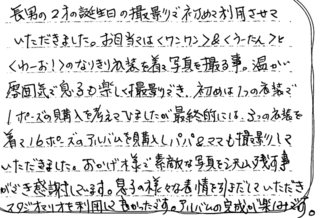 長男の2才の誕生日の撮影で初めて利用させて
いただきました。お目当ては<ワンワン>&<うーたん>と
<わーお!>のなりきり衣装を着て写真を撮る事。温かい
雰囲気で息子も楽しく撮影でき、初めは1つの衣装で
1ポーズの購入を考えてましたが最終的には、3つの衣装を
着て16ポーズのアルバムを購入しパパ&ママも撮影して
いただきました。おかげ様で素敵な写真を沢山残す事
ができ感謝しています。息子の様々な表情を引きだしていただき
スタジオマリオを利用して良かったです。アルバムの完成が楽しみです。